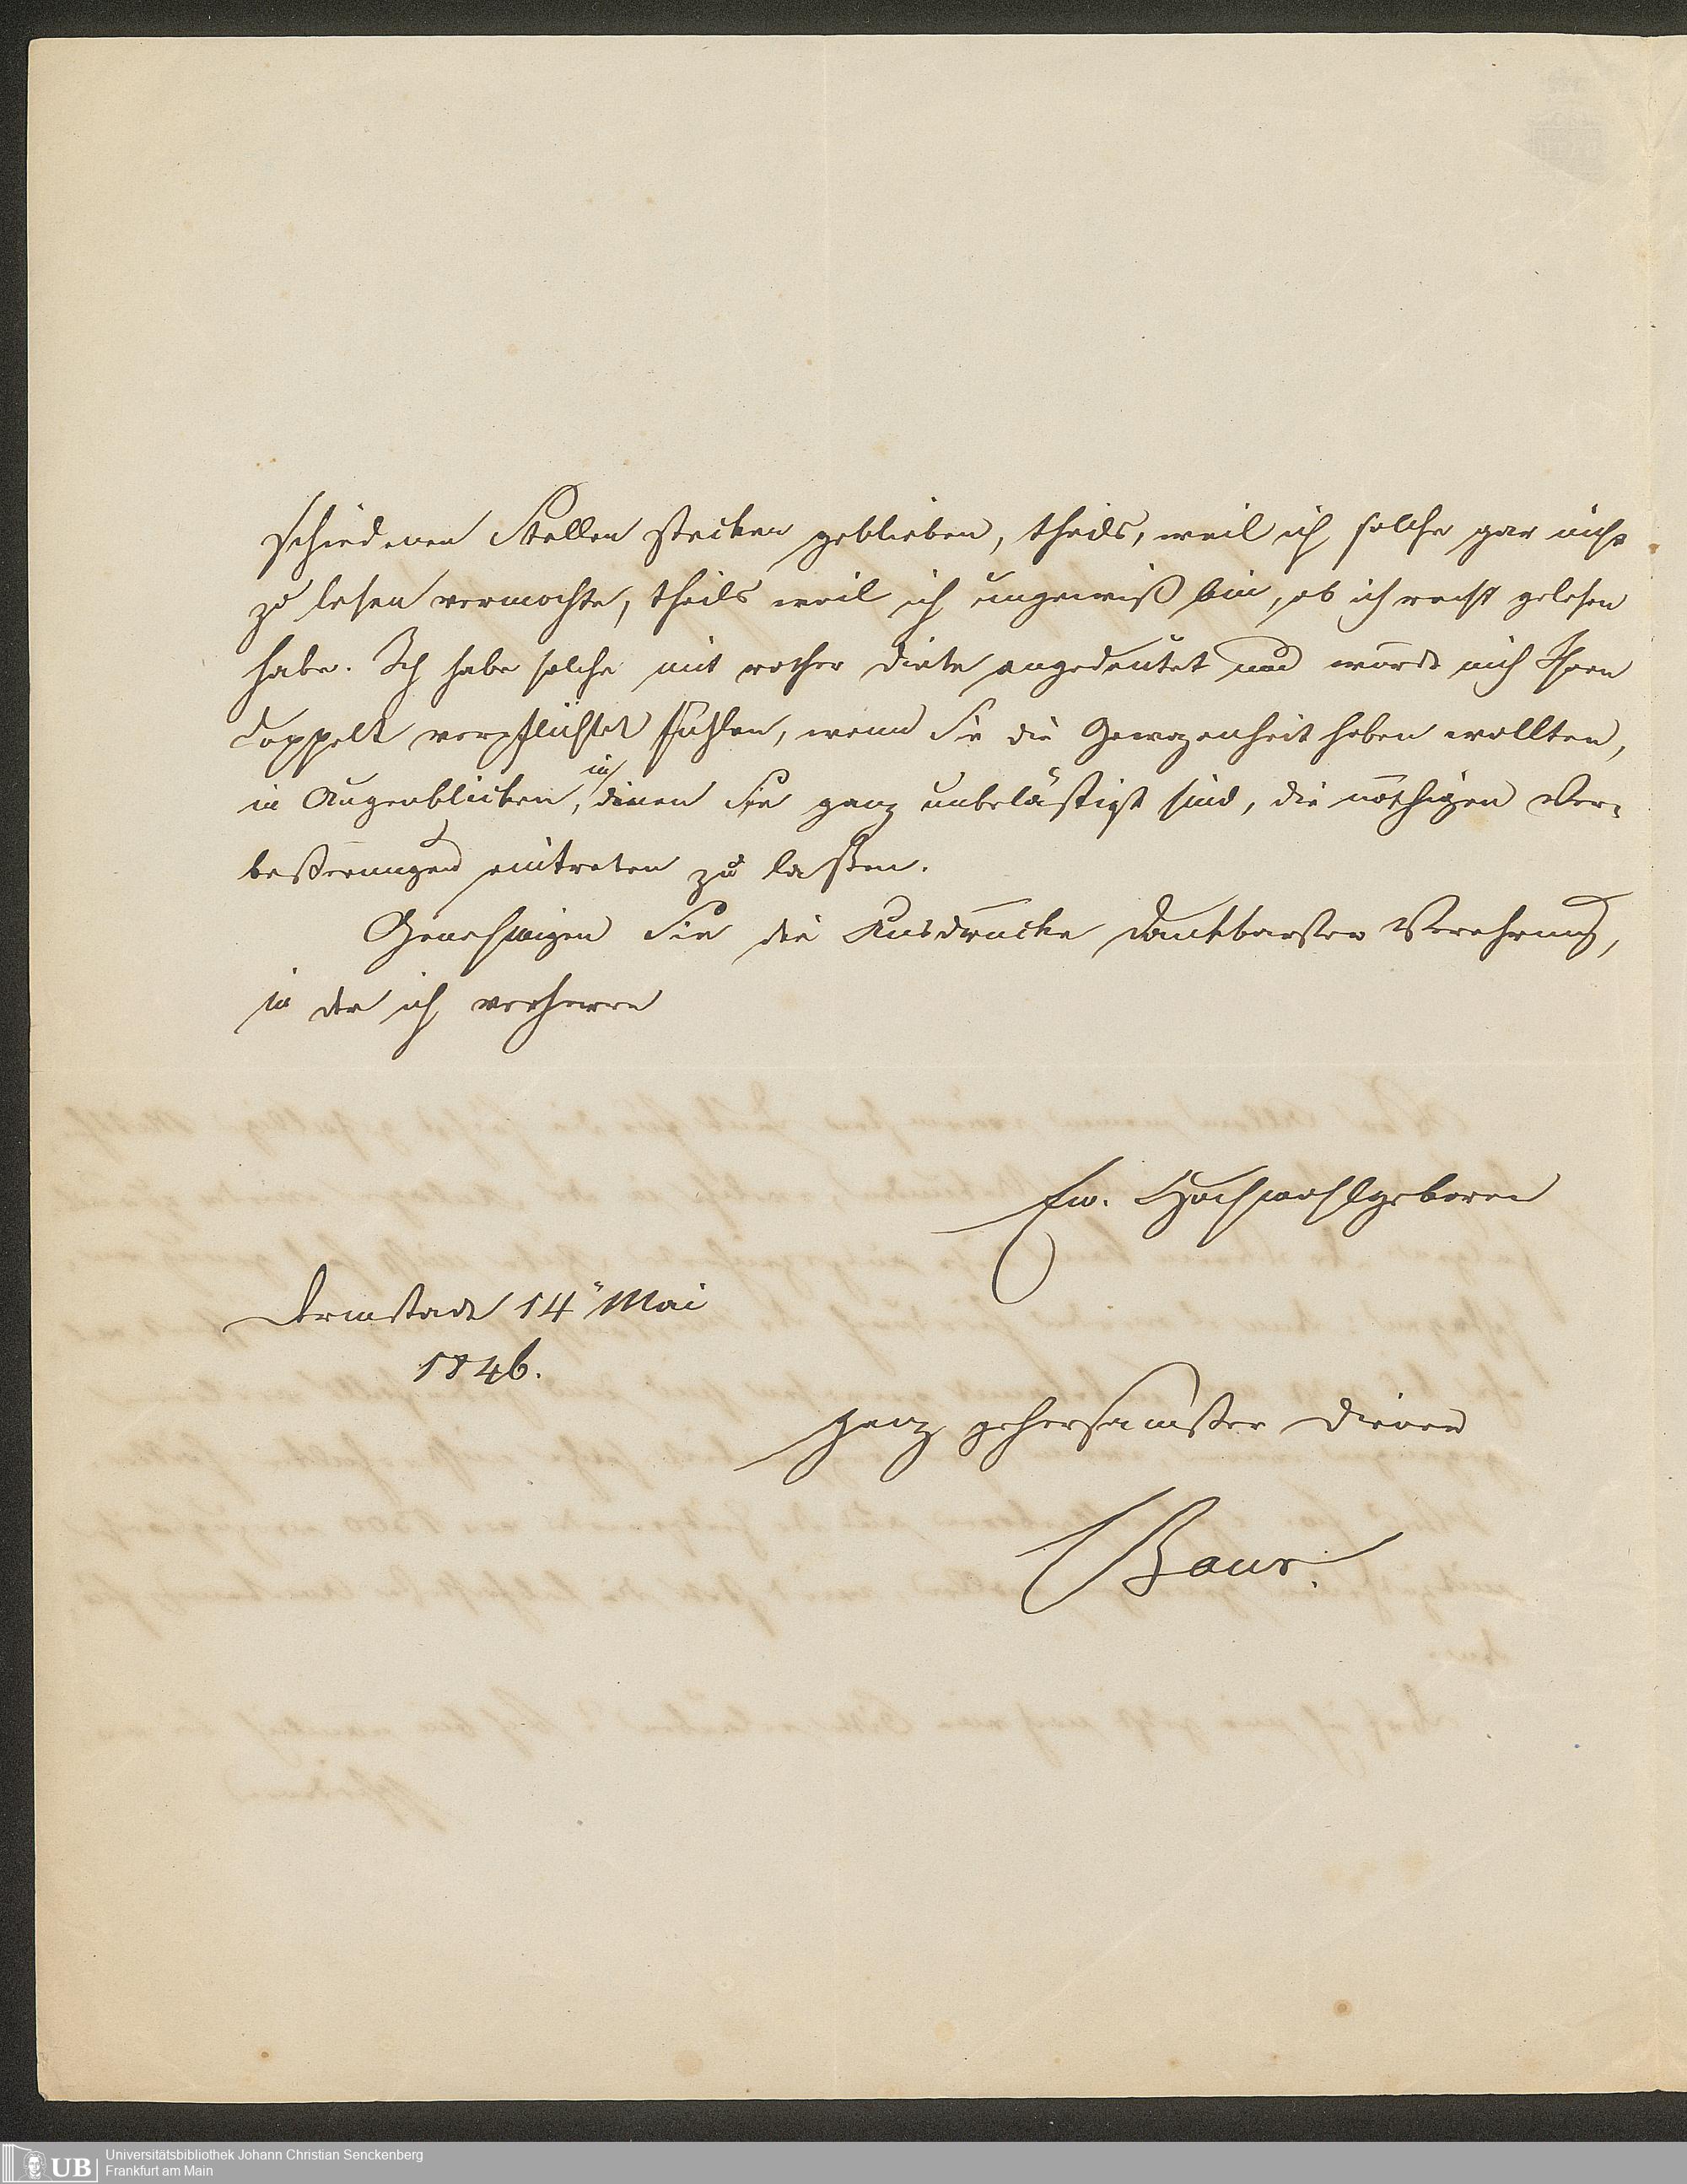 schiedenen Stellen stecken geblieben, theils, weil ich solche gar nicht
zu lesen vermochte, theils weil ich ungewiß bin, ob ich recht gelesen
habe. Ich habe solche mit rother Dinte angedeutet und würde mich Ihnen
doppelt verpflichtet fühlen, wenn Sie die Gewogenheit haben wollten,
in Augenblicken, in denen Sie ganz unbelästigt sind, die nöthigen Ver-
beßerungen eintreten zu laßen.
Genehmigen Sie die Ausdrücke dankbarster Verehrung,
in der ich verharre
Ew. Hochwohlgeboren
Darmstadt 14 Mai
1846.
ganz gehorsamster Diener
Baur.
UB
Universitätsbibliothek Johann Christian Senckenberg
Frankfurt am Main